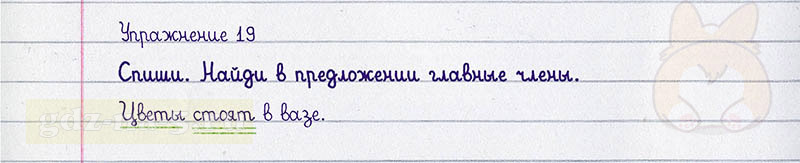 Упражнение 19
Спиши. Найди в предложении главные члены.
Цветы стоят в вазе.